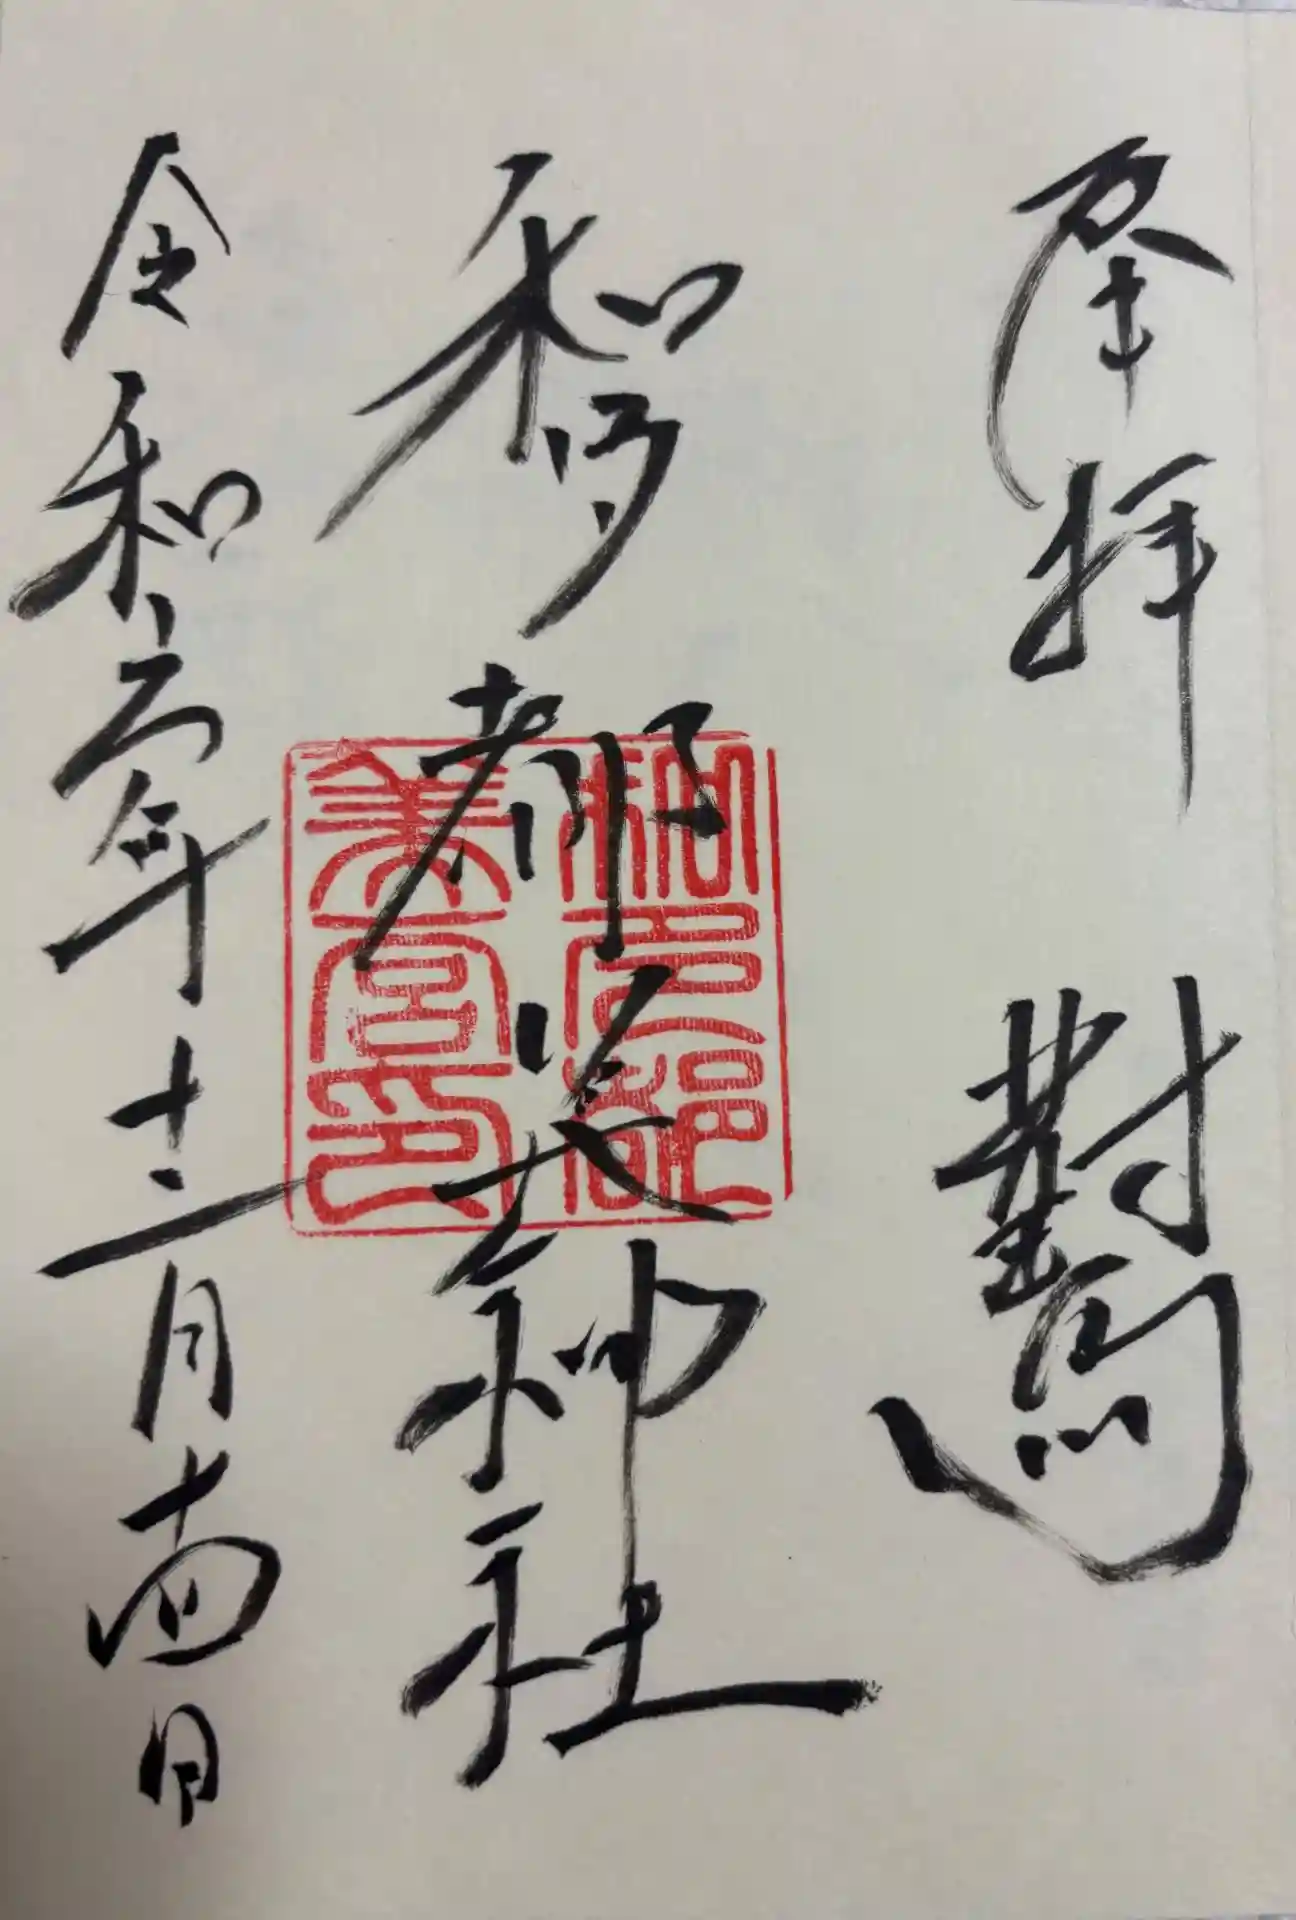 奉拝 對馬
和多都美神社
令和六年十二月十四日
和多都
美宮印